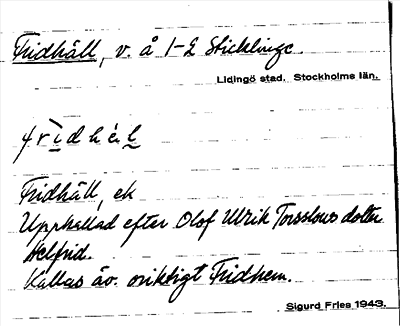 Fridhäll, v. å 1-2 Sticklinge.
Lidingö stad. Stockholms län.
fridhél
Fridhäll, ek
Uppkallad efter Olof Ulrik Torsslows dotter
Helfrid.
Kallas äv. oriktigt Fridhem.
Sigurd Fries 1943.